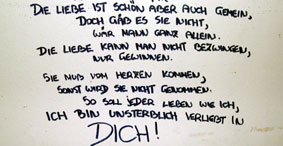 DIE LIEBE IST SCHÖN ABER AUCH GEMEIN,
DOCH GÄB ES SIE NICHT,
WÄR MANN GANZ ALLEIN.
DIE LIEBE KANN MAN NICHT BEZWINGEN,
NUR GEWINNEN.
SIE MUß VOM HERZEN KOMMEN,
SONST WIRD SIE NICHT GENOMMEN.
SO SOLL JEDER LIEBEN WIE ICH,
ICH BIN UNSTERBLICH VERLIEBT IN
DICH!